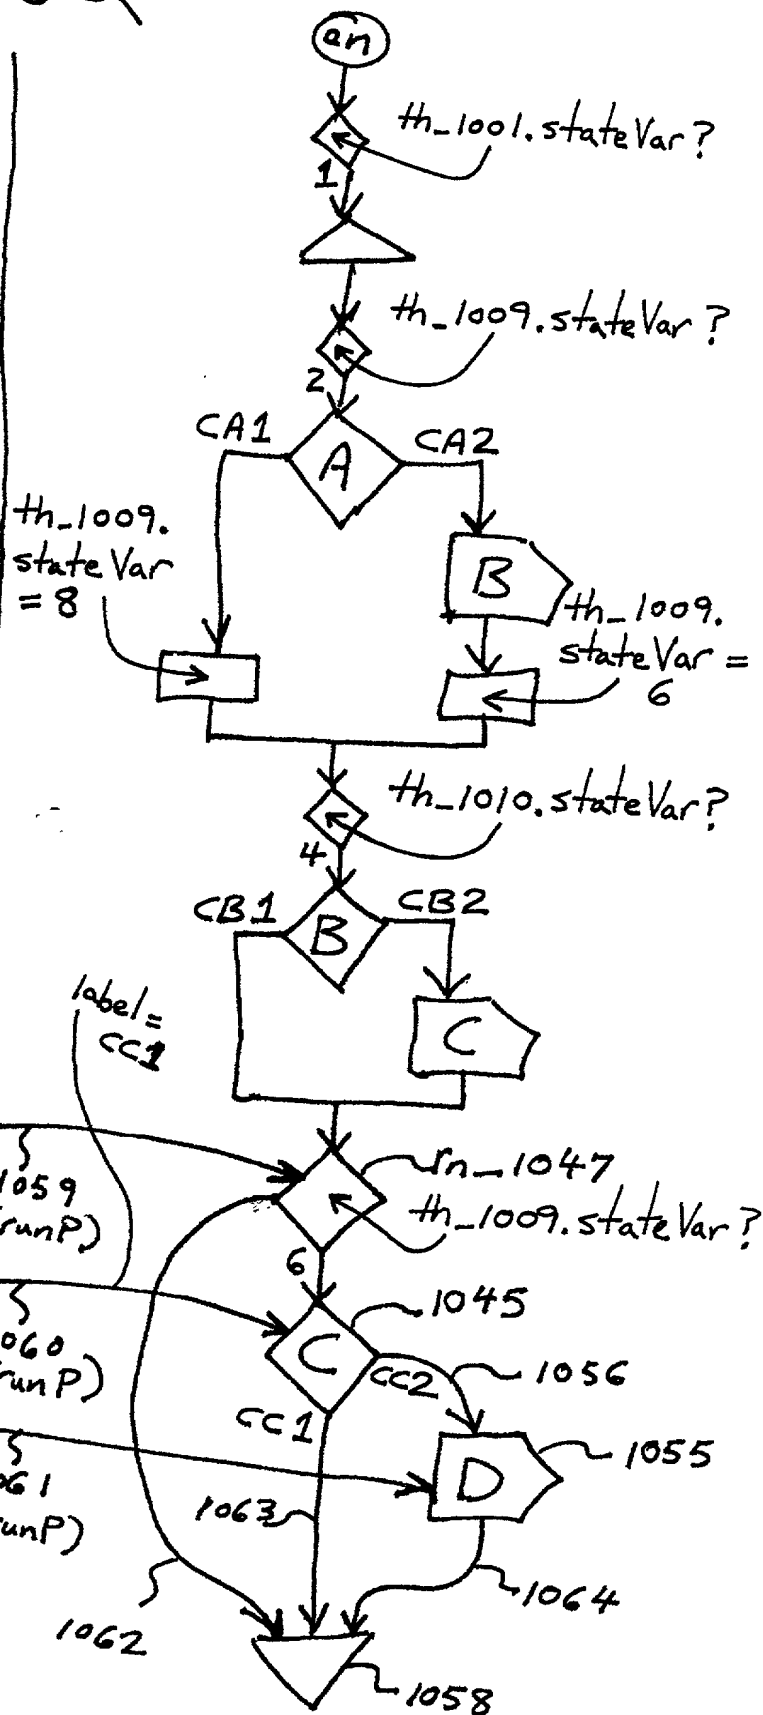 en
th_1001.stateVar?
1
th_1009.stateVar?
2
CA1
CA2
A
th_1009.
stateVar
= 8
B
th_1009.
stateVar =
6
th_1010.stateVar?
4
CB1
CB2
B
label=
CC1
C
rn_1047
1059
(runP)
th_1009.stateVar?
6
1045
060
runP)
C
CC2
1056
CC1
1055
D
061
unP)
1063
1064
1062
1058